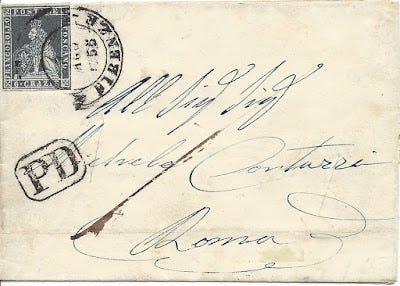 FRANCOBOLLO POSTALE TOSCANO
6 CRAZIE
FIRENZE
AGO
1855
PD
All Sig.r Sig.r
Contucci
Roma